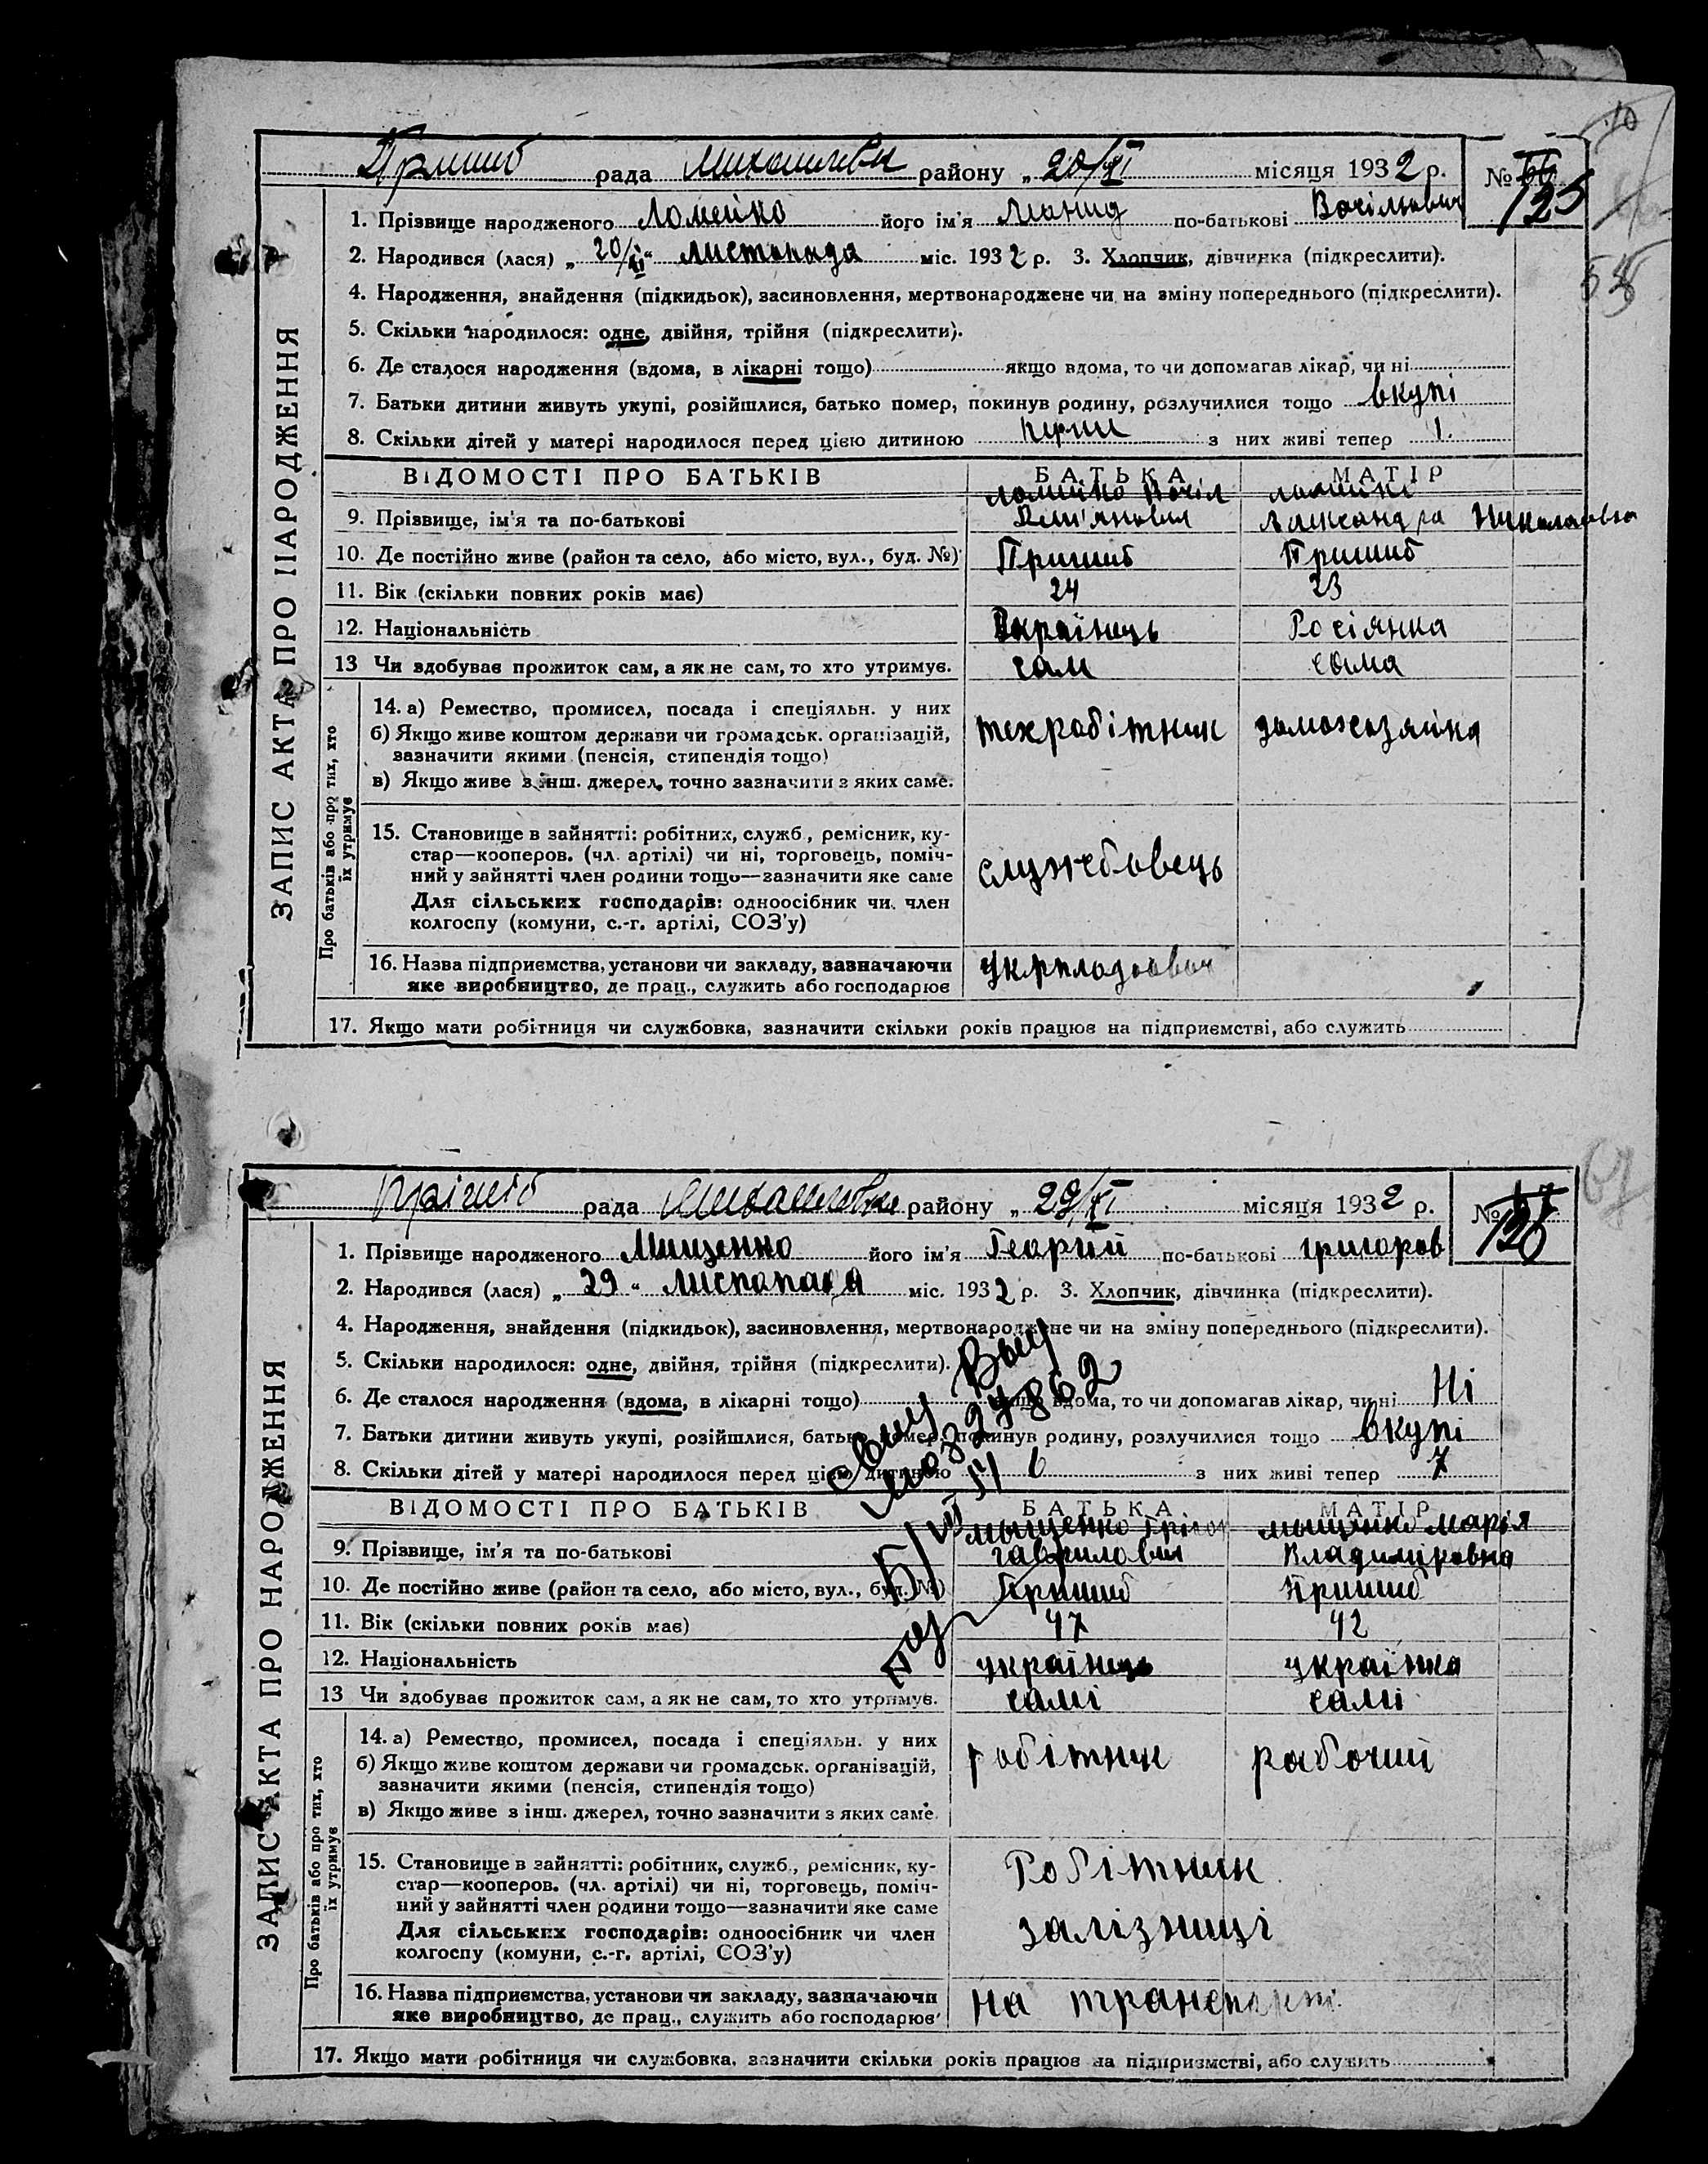 Пришиб рада Михайлівки району „ 20/XI місяця 1932 р. № 125
1. Прізвище народженого Ломейко його ім'я Лионид по-батькові Васільович
2. Народився (лася) „ 20/XI “ листопада міс. 1932 р. 3. Хлопчик, дівчинка (підкреслити).
4. Народження, знайдення (підкидьок), засиновлення, мертвонароджене чи на зміну попереднього (підкреслити).
5. Скільки народилося: одне, двійня, трійня (підкреслити).
6. Де сталося народження (вдома, в лікарні тощо) якщо вдома, то чи допомагав лікар, чи ні
7. Батьки дитини живуть укупі, розійшлися, батько помер, покинув родину, розлучилися тощо вкупі
8. Скільки дітей у матері народилося перед цією дитиною з них живі тепер 1.
ЗАПИС АКТА ПРО НАРОДЖЕННЯ
ВІДОМОСТІ ПРО БАТЬКІВ БАТЬКА МАТІР
9. Прізвище, ім'я та по-батькові Ломейко Васіл Дем'янович Ломейко Николаевна
10. Де постійно живе (район та село, або місто, вул., буд. №) Пришиб Пришиб
11. Вік (скільки повних років має) 24 23
12. Національність Українець Росіянка
13 Чи здобуває прожиток сам, а як не сам, то хто утримує. сам сама
Про батьків або про тих, хто їх утримує
14. а) Ремество, промисел, посада і спеціяльн. у них техробітник домохозяйка
б) Якщо живе коштом держави чи громадськ. організацій,
зазначити якими (пенсія, стипендія тощо)
в) Якщо живе з інш. джерел, точно зазначити з яких саме.
15. Становище в зайнятті: робітник, служб., ремісник, ку-
стар—кооперов. (чл. артілі) чи ні, торговець, поміч-
ний у зайнятті член родини тощо—зазначити яке саме службовець
Для сільських господарів: одноосібник чи член
колгоспу (комуни, с.-г. артілі, СОЗ'у)
16. Назва підприємства, установи чи закладу, зазначаючи
яке виробництво, де прац., служить або господарює
17. Якщо мати робітниця чи службовка, зазначити скільки років працює на підприємстві, або служить
Прішіб рада Михайлівки району „ 29/XI місяця 1932 р. № 126
1. Прізвище народженого Мищенко його ім'я Георгій по-батькові григоров
2. Народився (лася) „ 29 “ листопада міс. 1932 р. 3. Хлопчик, дівчинка (підкреслити).
4. Народження, знайдення (підкидьок), засиновлення, мертвонароджене чи на зміну попереднього (підкреслити).
5. Скільки народилося: одне, двійня, трійня (підкреслити).
6. Де сталося народження (вдома, в лікарні тощо) якщо вдома, то чи допомагав лікар, чи ні Ні
7. Батьки дитини живуть укупі, розійшлися, батько помер, покинув родину, розлучилися тощо вкупі
8. Скільки дітей у матері народилося перед цією дитиною 6 з них живі тепер 7
ЗАПИС АКТА ПРО НАРОДЖЕННЯ
ВІДОМОСТІ ПРО БАТЬКІВ БАТЬКА МАТІР
9. Прізвище, ім'я та по-батькові Мыщенко Грігор гаврилович Мыщенко Марія Владиміровна
10. Де постійно живе (район та село, або місто, вул., буд. №) Пришиб Пришиб
11. Вік (скільки повних років має) 47 42
12. Національність українець українка
13 Чи здобуває прожиток сам, а як не сам, то хто утримує. самі самі
Про батьків або про тих, хто їх утримує
14. а) Ремество, промисел, посада і спеціяльн. у них робітник рабочий
б) Якщо живе коштом держави чи громадськ. організацій,
зазначити якими (пенсія, стипендія тощо)
в) Якщо живе з інш. джерел, точно зазначити з яких саме.
15. Становище в зайнятті: робітник, служб., ремісник, ку-
стар—кооперов. (чл. артілі) чи ні, торговець, поміч-
ний у зайнятті член родини тощо—зазначити яке саме Робітник
Для сільських господарів: одноосібник чи член залізниці
колгоспу (комуни, с.-г. артілі, СОЗ'у)
16. Назва підприємства, установи чи закладу, зазначаючи на транспорті
яке виробництво, де прац., служить або господарює
17. Якщо мати робітниця чи службовка, зазначити скільки років працює на підприємстві, або служить